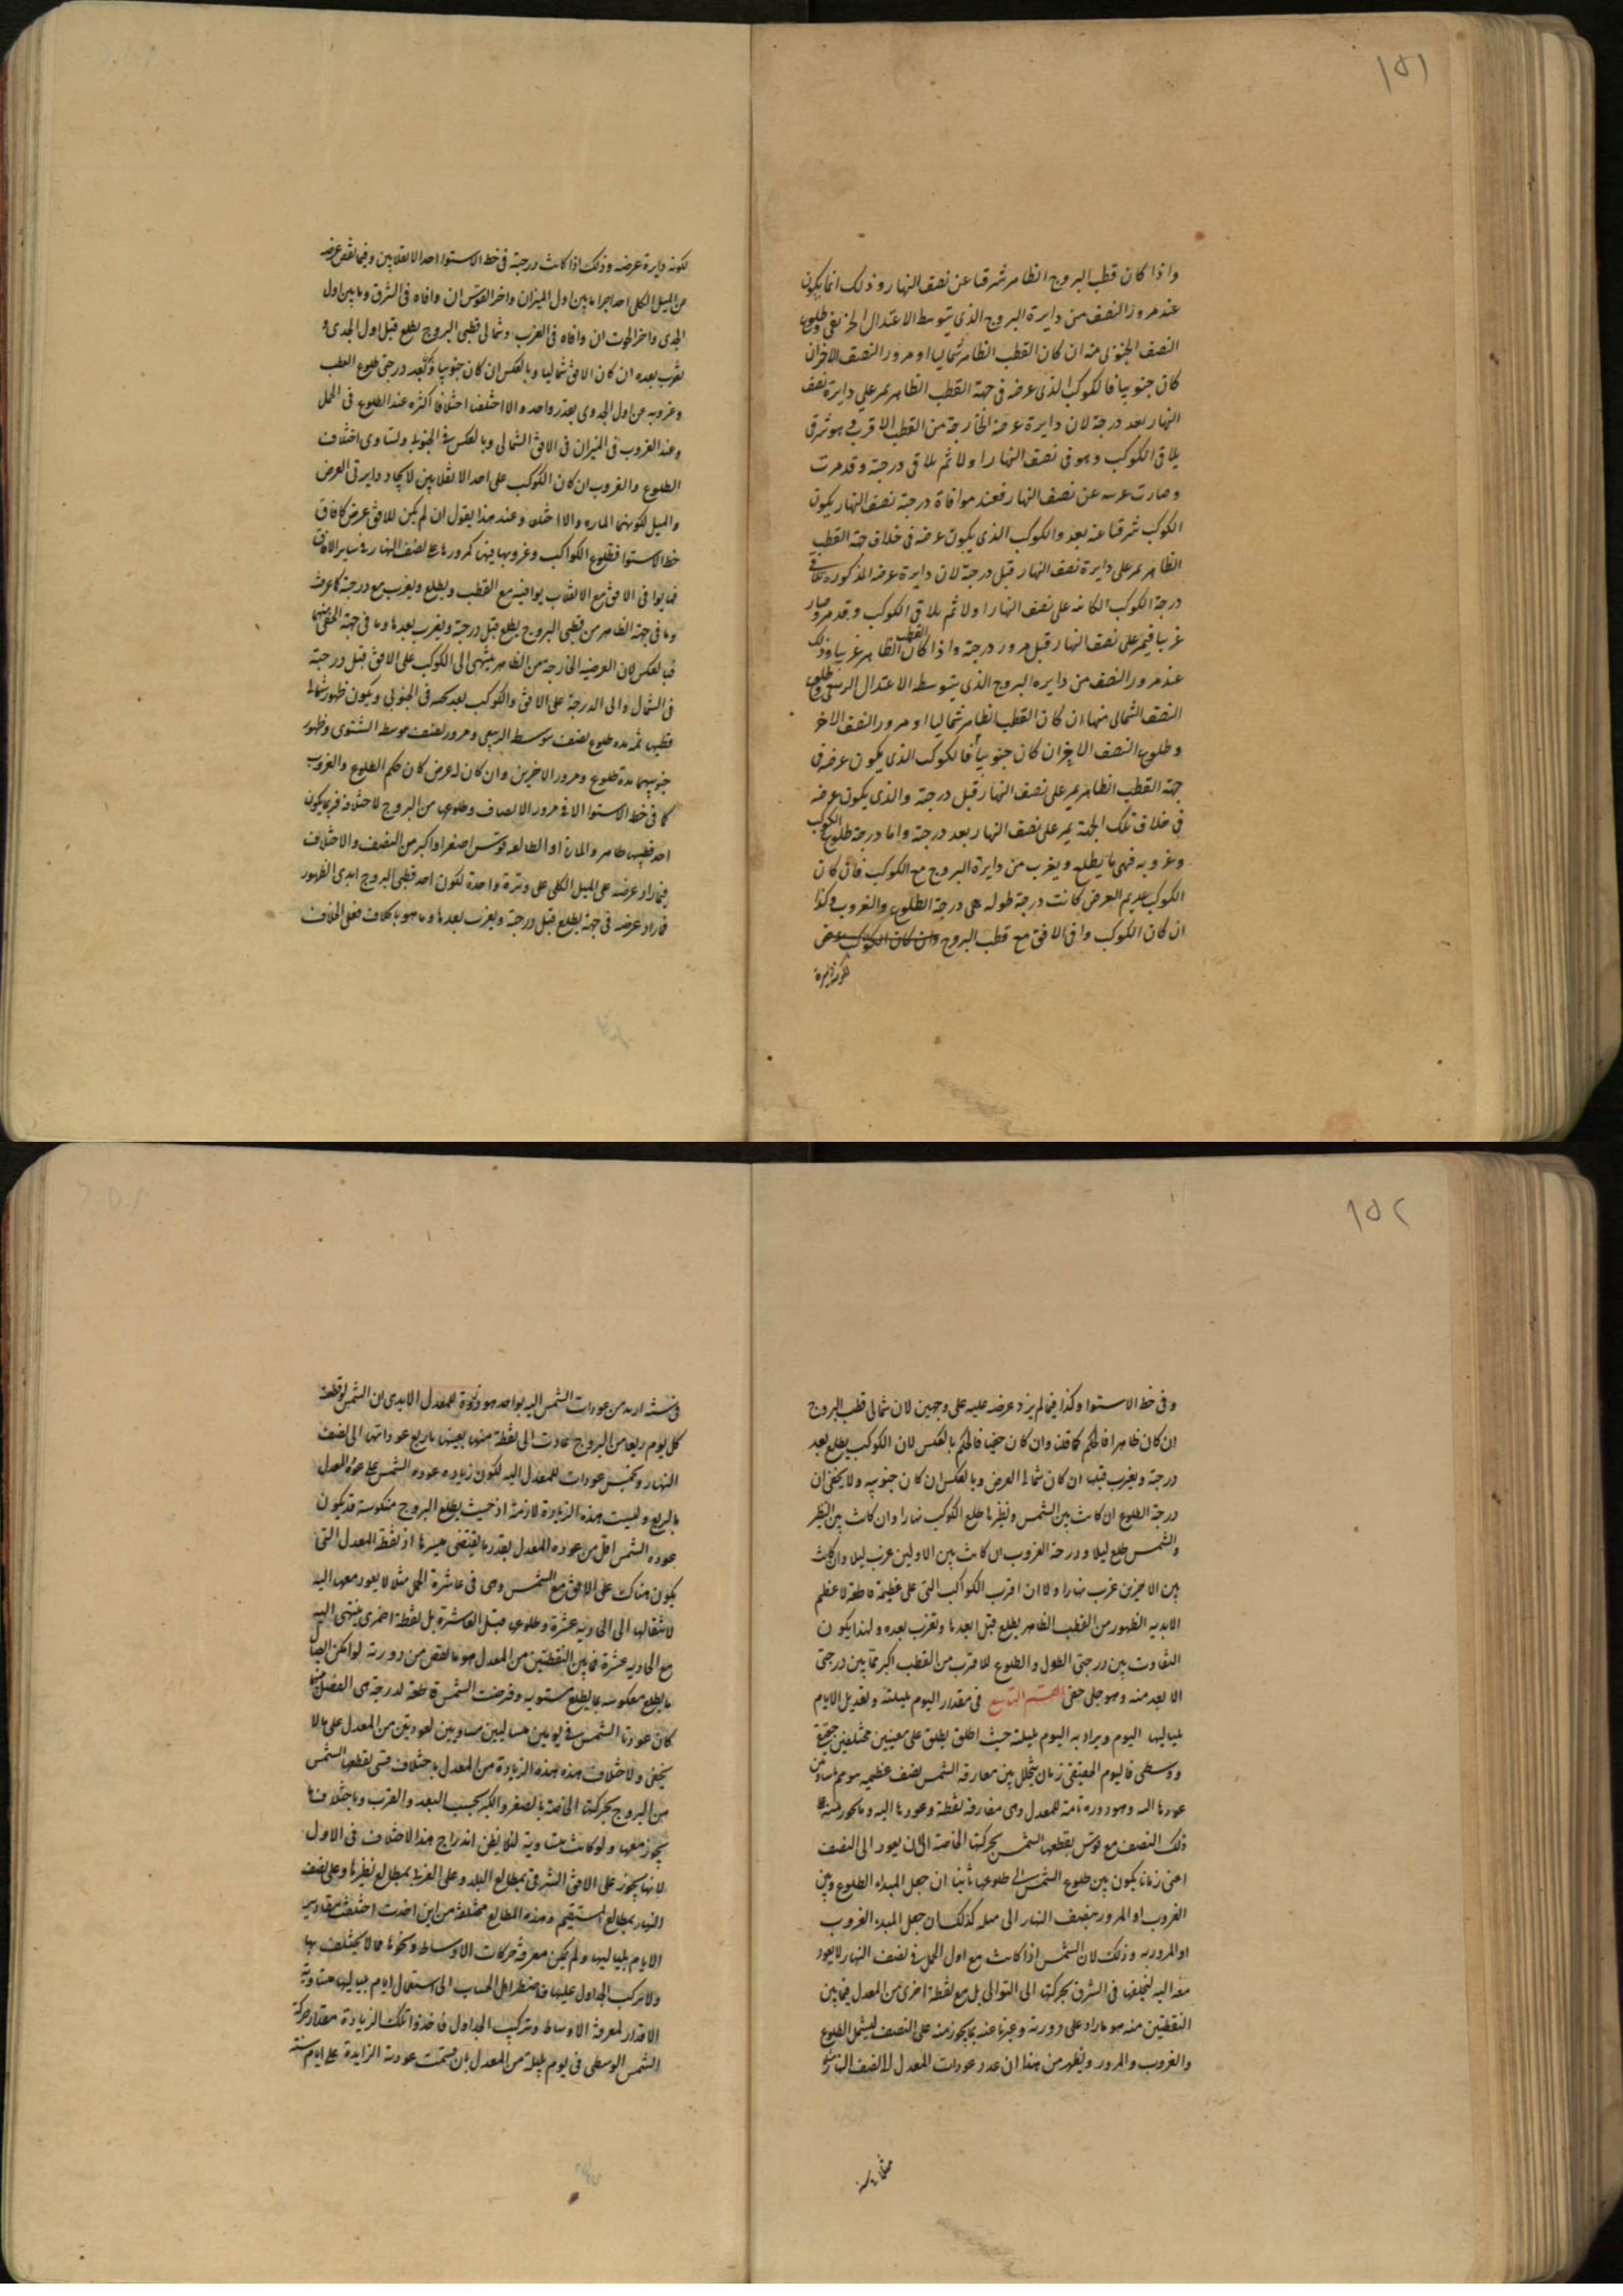 ١٥١
واذا كان قطب البروج الظاهر شرقيا عن نصف النهار وذلك انما يكون
عند مرور النصف من دايرة البروج الذى يتوسط الاعتدال الخريفى وطلوع
النصف الجنوبى منه ان كان القطب الظاهر شماليا او مرور النصف الاخر ان
كان جنوبيا فالكوكب الذى عرضه فى جهة القطب الظاهر يمر على دايرة نصف
النهار بعد درجته لان دايرة عرضه الخارجة من القطب الاقرب هو شرقى
يلاقى الكوكب وهو فى نصف النهار اولا ثم يلاقى درجته وقد مرت
وصارت غربيه عن نصف النهار فعند موافاة درجته نصف النهار يكون
الكوكب شرقيا عنه بعد والكوكب الذى يكون عرضه فى خلاف جهة القطب
الظاهر يمر على دايرة نصف النهار قبل درجته لان دايرة عرضه المذكورة تلاقى
درجة الكوكب الكائنه على نصف النهار اولا ثم يلاقى الكوكب وقد مر وصار
غربيا فيمر على نصف النهار قبل مرور درجته واذا كان القطب الظاهر غربيا وذلك
عند مرور النصف من دايره البروج الذى يتوسط الاعتدال الربيعى وطلوع
النصف الشمالى منها ان كان القطب الظاهر شماليا او مرور النصف الاخر
وطلوع النصف الاخر ان كان جنوبيا فالكوكب الذى يكون عرضه فى
جهة القطب الظاهر يمر على نصف النهار قبل درجته والذى يكون عرضه
فى خلاف تلك الجهة يمر على نصف النهار بعد درجته واما درجة طلوع الكوكب
وغروبه فهى ما يطلع ويغرب من دايرة البروج مع الكوكب فان كان
الكوكب عديم العرض كانت درجة طوله هى درجة الطلوع والغروب وكذا
ان كان الكوكب وافى الافق مع قطب البروج وان كان الكوكب عرض
لكونه دايرة
لكونه دايرة عرضه وذلك اذا كانت درجته فى خط الاستوا احد الانقلابين وفيما نقص عرضه
من الميل الكلى احد اجزا ما بين اول الميزان واخر القوس ان وافاه فى الشرق وما بين اول
الجدى واخر الحوت ان وافاه فى الغرب وشمالى قطبى البروج يطلع قبل اول الجدى و
يغرب بعده ان كان الافق شماليا وبالعكس ان كان جنوبيا وبعد درجتى طلوع القطب
وغروبه من اول الجدى بقدر واحد والا اختلف اختلافا اكثره عند الطلوع فى الحمل
وعند الغروب فى الميزان فى الافق الشمالى وبالعكس فى الجنوبى وتساوى اختلاف
الطلوع والغروب ان كان الكوكب على احد الانقلابين لاتحاد دايرتى العرض
والميل لكونهما الماره والا اختلف وعند هذا يقول ان لم يكن للافق عرض كافاق
خط الاستوا فطلوع الكواكب وغروبها فيها كمرورها على نصف النهار فى ساير الافاق
فما يوافى الافق مع الانقلاب يوافيه مع القطب ويطلع ويغرب مع درجته كما عرفت
وما فى جهة الظاهر من قطبى البروج يطلع قبل درجته ويغرب بعدها وما فى جهة الخفى منهما
فبالعكس لان العرضيه الخارجة من الظاهر ينتهى الى الكوكب على الافق قبل درجته
فى الشمال والى الدرجة على الافق والكوكب بعد تحته فى الجنوبى ويكون ظهور شمالى
قطبيها مدة طلوع نصف يتوسط الربيعى ومرور نصف يتوسط الشتوى وظهور
جنوبيهما مدة طلوع ومرور الاخرين وان كان له عرض كان حكم الطلوع والغروب
كما فى خط الاستوا الا فى مرور الانصاف وطلوعها من البروج لاختلافه فربما يكون
احد قطبيها ظاهر والمارة او الطالعه قوس اصغر او اكبر من النصف والاختلاف
فيما زاد عرضه على الميل الكلى على وتيرة واحدة لكون احد قطبى البروج ابدى الظهور
فما زاد عرضه فى جهته يطلع قبل درجته ويغرب بعدها وما هو بخلافه فعلى الخلاف
١٥٢
وفى خط الاستوا وكذا فيما لم يزد عرضه عليه على وجهين لان شمالى قطب البروج
ان كان ظاهرا فالحكم كما قلنا وان كان خفيا فالحكم بالعكس لان الكوكب يطلع بعد
درجته ويغرب قبلها ان كان شمالى العرض وبالعكس ان كان جنوبيه ولا يخفى ان
درجة الطلوع ان كانت بين الشمس ونظيرها طلع الكوكب نهارا وان كانت بين النظير
والشمس طلع ليلا ودرجة الغروب ان كانت بين الاولين غرب ليلا وان كانت
بين الاخرين غرب نهارا ولا ان اقرب الكواكب التى على عظيمة قاطعة لاعظم
الابديه الظهور من القطب الظاهر يطلع قبل ابعدها وتغرب بعده ولهذا يكون
التفاوت بين درجتى الطول والطلوع للاقرب من القطب اكبر مما بين درجتى
الابعد منه وهو جلى خفى القسم التاسع فى مقدار اليوم بليلته وتعديل الايام
بلياليها اليوم ويراد به اليوم بليلته حيث اطلق يطلق على معنيين مختلفين حقيقى
ووسطى فاليوم الحقيقى زمان يتخلل بين مفارقة الشمس نصف عظيمه
عودها اليه وهو دوره تامة للمعدل وهى مفارقة نقطة وعودها اليه وما يجوز منه على
ذلك النصف مع قوس يقطعها الشمس بحركتها الخاصة الى ان يعود الى النصف
اعنى زمانا يكون بين طلوع الشمس الى طلوعها ثانيا ان جعل المبداء الطلوع وبين
الغروب او المرور بنصف النهار الى مثله كذلك ان جعل المبدء الغروب
او المرور به وذلك لان الشمس اذا كانت مع اول الحمل فى نصف النهار لا يعود
معه اليه لتخلفها فى الشرق بحركتها الى التوالى بل مع نقطة اخرى من المعدل فيما بين
النقطتين منه هو ما زاد على دورته وعبرنا عنه بما يجوز منه على النصف ليشمل الطلوع
والغروب والمرور ويظهر من هذا ان عدد عودات المعدل الى النصف
فى سنة ازيد من عودات الشمس اليه بواحد هو دورة للمعدل الا يرى ان الشمس لو قطعت
كل يوم ربعا من البروج عادت الى نقطة منها بعينها باربع عوداتها الى نصف
النهار وبخمس عودات للمعدل اليه لكون زيادة عودة الشمس على عودة المعدل
بالربع وليست هذه الزيادة لازمة اذ حيث يطلع البروج منكوسة قد يكون
عودة الشمس اقل من عوده المعدل بقدر ما يقتضى مسيرها اذ نقطة المعدل التى
يكون هناك على الافق مع الشمس وهى فى عاشرة الحمل مثلا لا يعود معها اليه
لانتقالها الى الحاديه عشرة وطلوعها قبل العاشرة بل نقطة اخرى ينتهى اليه
مع الحاديه عشرة فما بين النقطتين من المعدل هو ما نقص من دورته
ما يطلع معكوسه بما يطلع مستويه وفرضت الشمس قاطعة لدرجة هى الفصل بينهما
كان عودتا الشمس فى يومين متساويين لعودتين من المعدل على ما لا
يخفى ولاختلاف هذه الزيادة من المعدل باختلاف قسى يقطعها الشمس
من البروج بحركتها الخاصة بالصغر والكبر بحسب البعد والقرب وباختلاف ما
يجوز معها ولو كانت متساوية لئلا يظن اندراج هذا الاختلاف فى الاول
لانها يجوز على الافق الشرقى بمطالع البلد وعلى الغربى بمطالع نظيرها وعلى نصف
النهار بمطالع المستقيم وهذه المطالع مختلفة من اين اخذت اختلفت مقادير
الايام بلياليها ولم يكن معرفة حركات الاوساط ونحوها مما لا يختلف بها
ولا تركب الجداول عليها فاضطر اهل الحساب الى استعمال ايام بلياليها متساوية
الاقدار لمعرفة الاوساط وتركيب الجداول فاخذوا تلك الزيادة مقدار حركة
الشمس الوسطى فى يوم بليلة من المعدل بان قسمت عودته الزايدة على ايام سنة